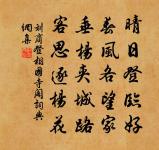 晴日登臨好
春風各望家
垂楊夾城路
客思逐楊花
劉商登相國寺閣詞典
網集